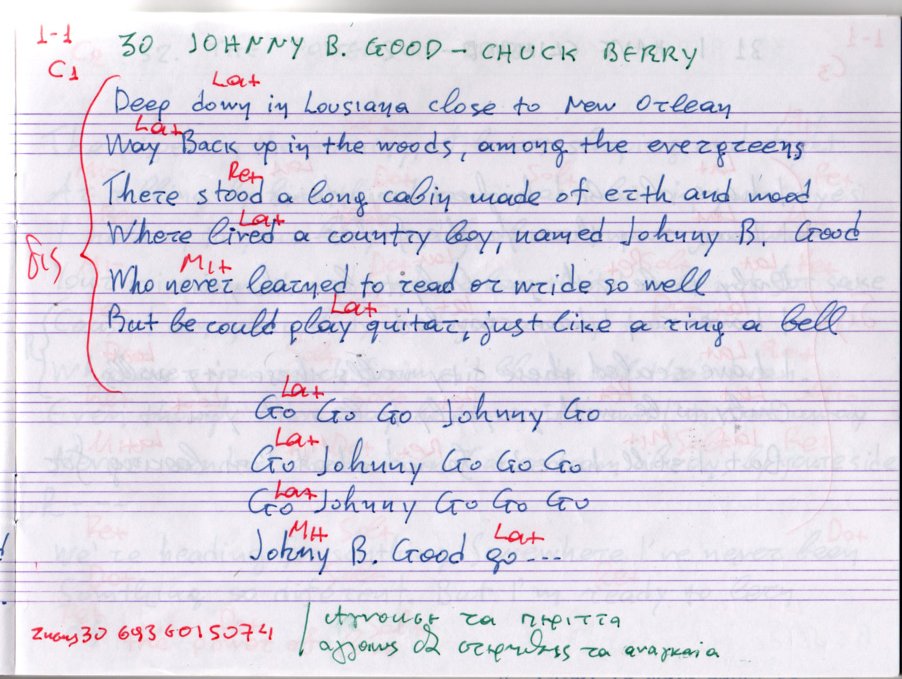 1-1
30 JOHNNY B. GOOD - CHUCK BERRY
C1
La+
Deep down in Lousiana close to New Orlean
La+
Way Back up in the woods, among the evergreens
Re+
There stood a long cabin made of erth and wood
La+
Where lived a country boy, named Johnny B. Good
δις
Mi+
Who never learned to read or wride so well
La+
But be could play guitar, just like a ring a bell
La+
Go Go Go Johnny Go
La+
Go Johnny Go Go Go
La+
Go Johnny Go Go Go
Mi+ La+
Johny B. Good go ---
30 6936015074
τα περιττα
θα στερηθεις τα αναγκαια